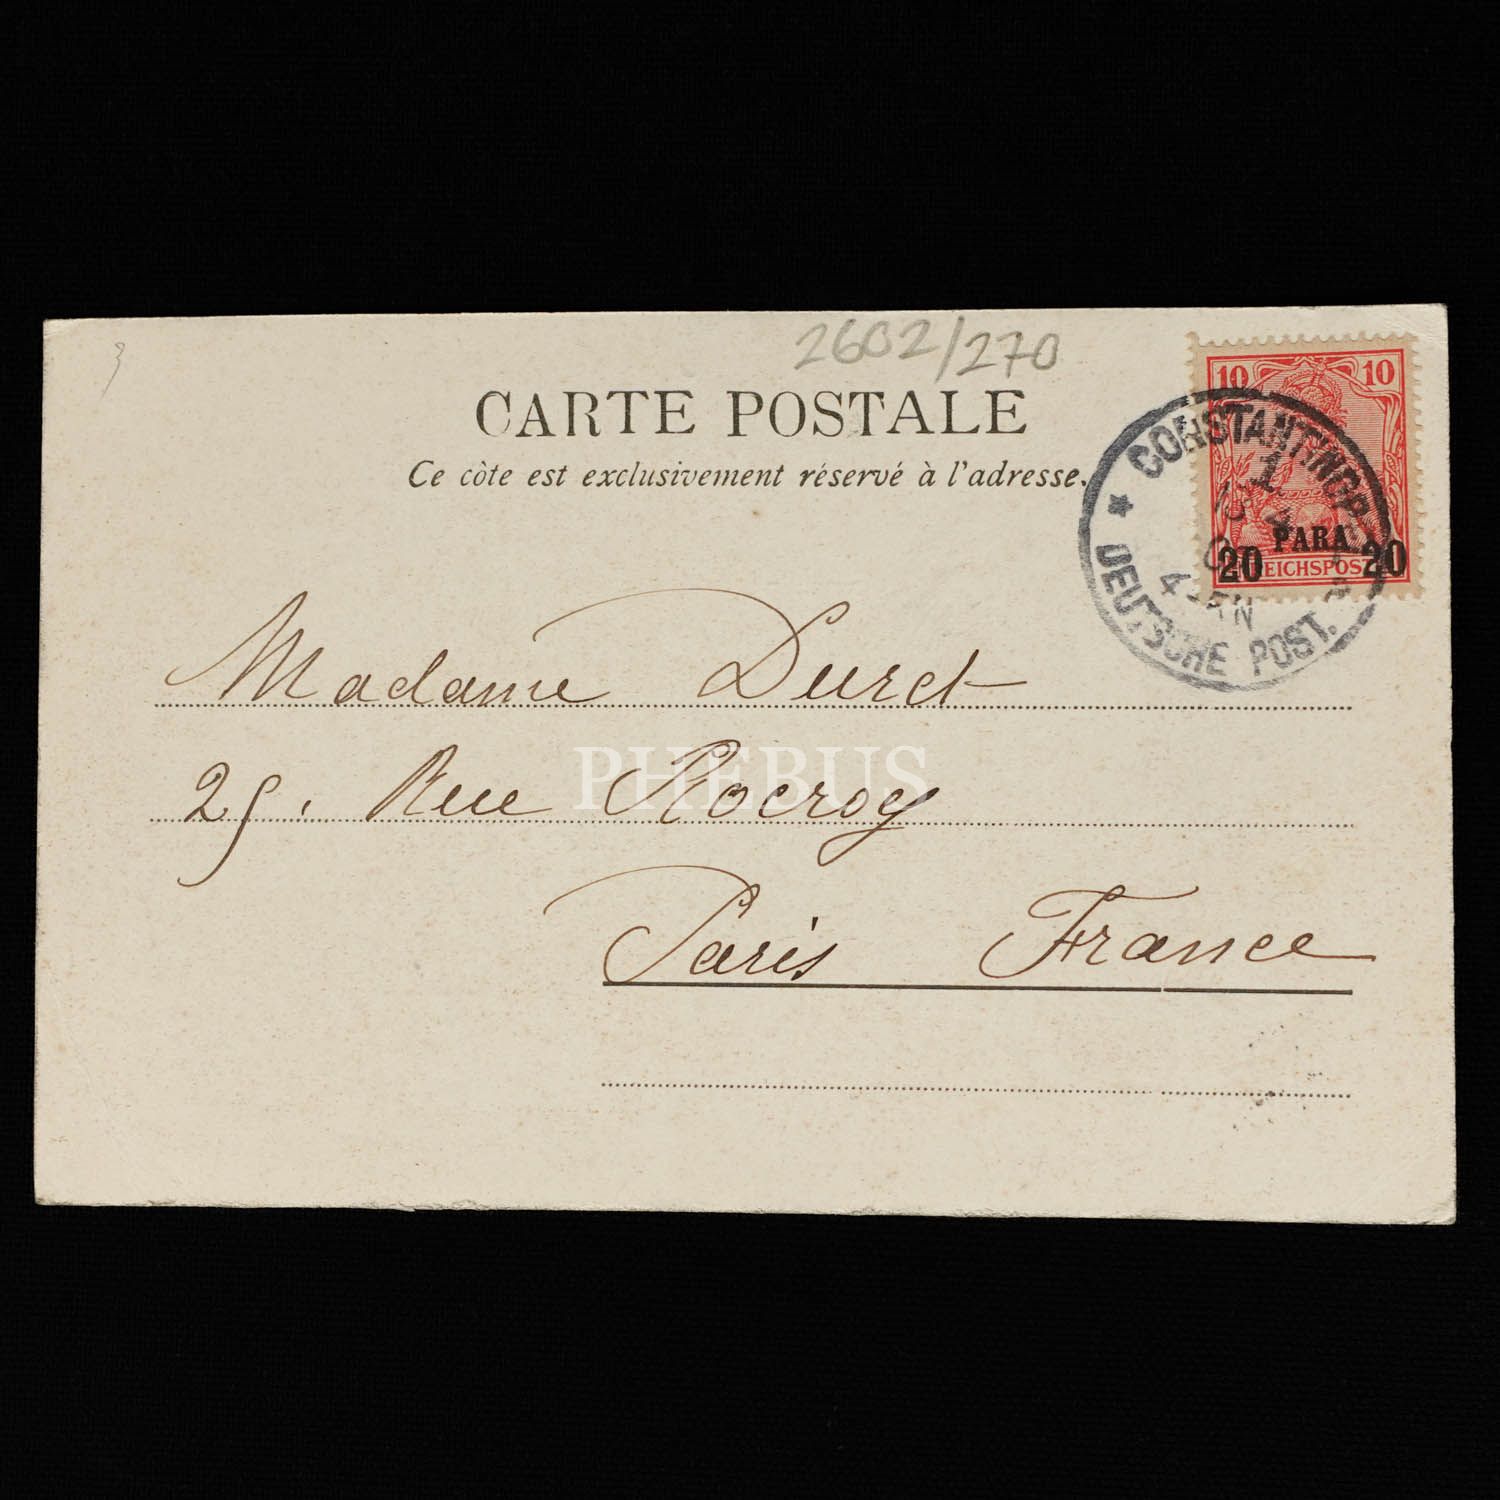 3
2602/270
CARTE POSTALE
Ce côte est exclusivement réservé à l'adresse.
10 10
PARA
20 20
REICHSPOST
CONSTANTINOPEL
1
* DEUTSCHE POST.
Madame Duret
25. Rue Rocroy
PHEBUS
Paris France